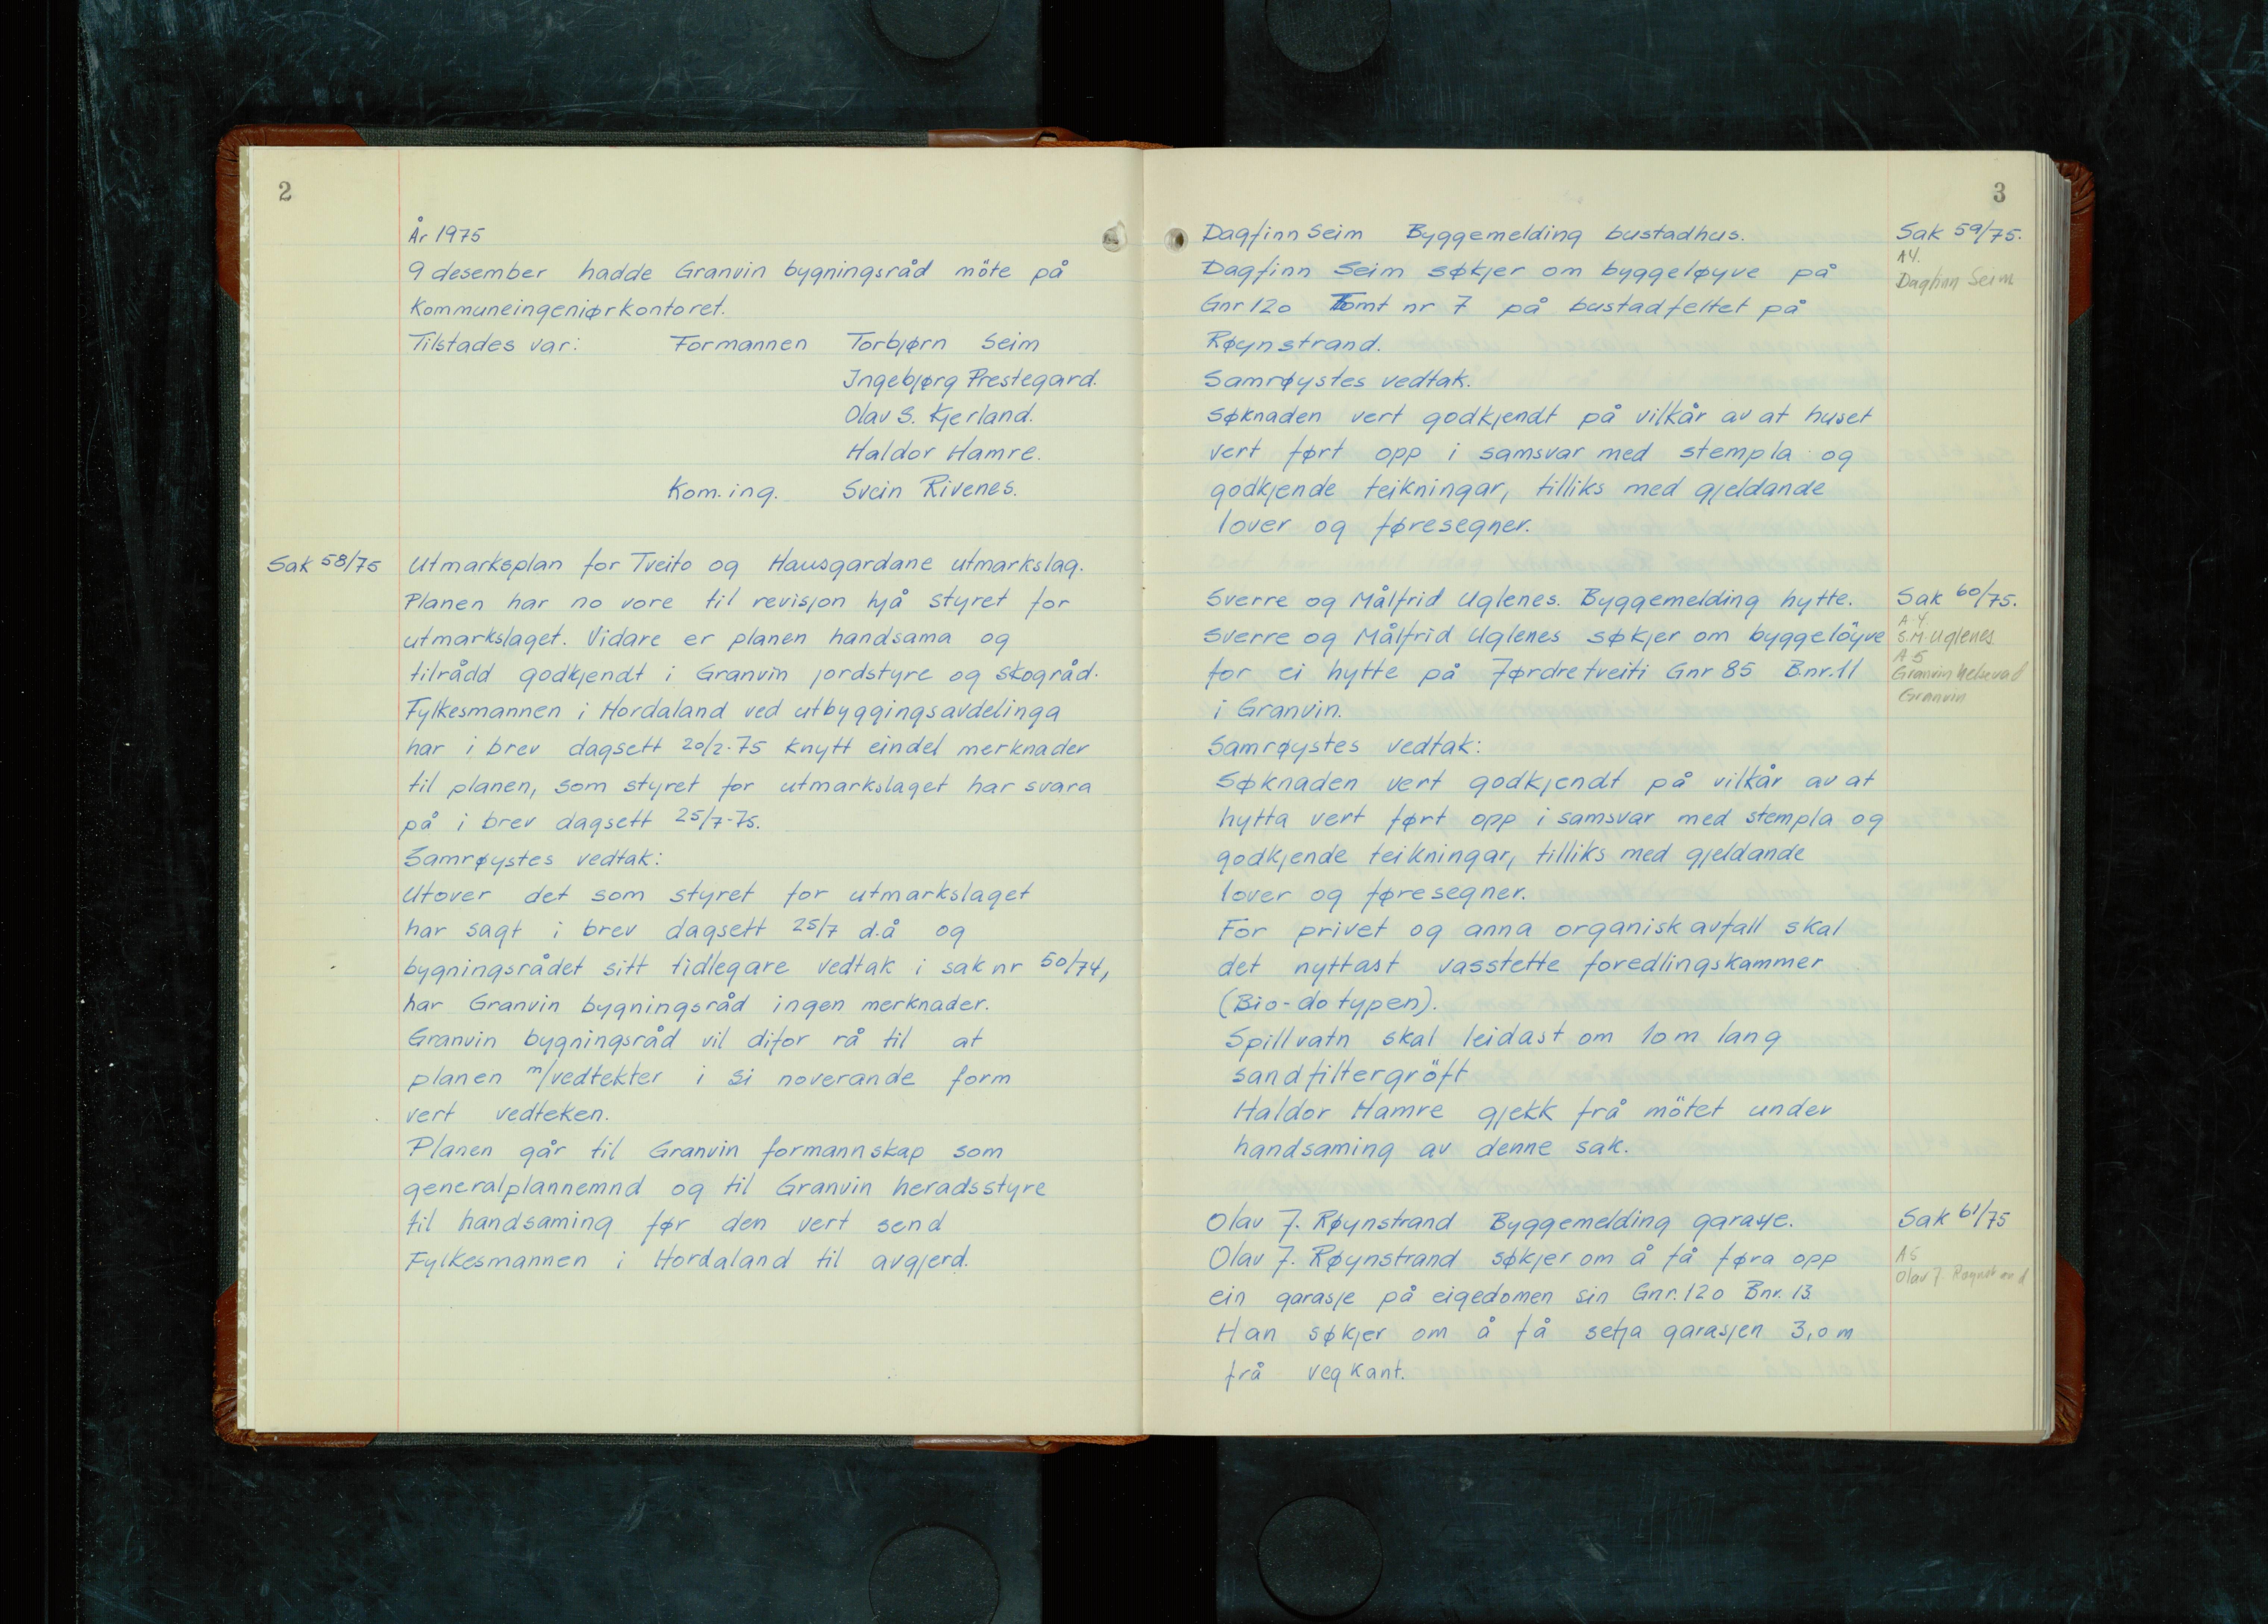 2
År 1975
9 desember hadde Granvin bygningsråd möte på
Kommuneingeniørkontoret.
Tilstades var: Formannen Torbjørn Seim
Ingebjørg Prestegard.
Olav S. Kjerland.
Haldor Hamre.
Kom.ing. Svein Rivenes.
Sak 58/75 Utmarksplan for Tveito og Hausgardane utmarkslag.
Planen har no vore til revisjon hjå styret for
utmarkslaget. Vidare er planen handsama og
tilrådd godkjendt i Granvin jordstyre og skogråd.
Fylkesmannen i Hordaland ved utbyggingsavdelinga
har i brev dagsett 20/2-75 knytt eindel merknader
til planen, som styret for utmarkslaget har svara
på i brev dagsett 25/7-75.
Samrøystes vedtak:
Utover det som styret for utmarkslaget
har sagt i brev dagsett 25/7 d.å og
bygningsrådet sitt tidlegare vedtak i sak nr 50/74,
har Granvin bygningsråd ingen merknader.
Granvin bygningsråd vil difor rå til at
planen m/vedtekter i si noverande form
vert vedteken.
Planen går til Granvin formannskap som
generalplannemnd og til Granvin heradsstyre
til handsaming før den vert send
Fylkesmannen i Hordaland til avgjerd.
3
Dagfinn Seim Byggemelding bustadhus. Sak 59/75.
A4.
Dagfinn Seim søkjer om byggeløyve på
Dagfinn Seim
Gnr 120 Tomt nr 7 på bustadfeltet på
Røynstrand.
Samrøystes vedtak.
Søknaden vert godkjendt på vilkår av at huset
vert ført opp i samsvar med stempla og
godkjende teikningar, tilliks med gjeldande
lover og føresegner.
Sverre og Målfrid Uglenes. Byggemelding hytte. Sak 60/75.
A4
Sverre og Målfrid Uglenes søkjer om byggelöyve S.M. Uglenes
A5
for ei hytte på Førdretveiti Gnr 85 Bnr. 11 Granvin
i Granvin. Granvin
Samrøystes vedtak:
Søknaden vert godkjendt på vilkår av at
hytta vert ført opp i samsvar med stempla og
godkjende teikningar, tilliks med gjeldande
lover og føresegner.
For privet og anna organisk avfall skal
det nyttast vasstette foredlingskammer
(Bio-do typen).
Spillvatn skal leidast om 10 m lang
sandfiltergröft
Haldor Hamre gjekk frå mötet under
handsaming av denne sak.
Olav J. Røynstrand Byggemelding garasje. Sak 61/75
Olav J. Røynstrand søkjer om å få føra opp A5
Olav J. Røynstrand
ein garasje på eigedomen sin Gnr. 120 Bnr. 13.
Han søkjer om å få setja garasjen 3,0 m
frå vegkant.